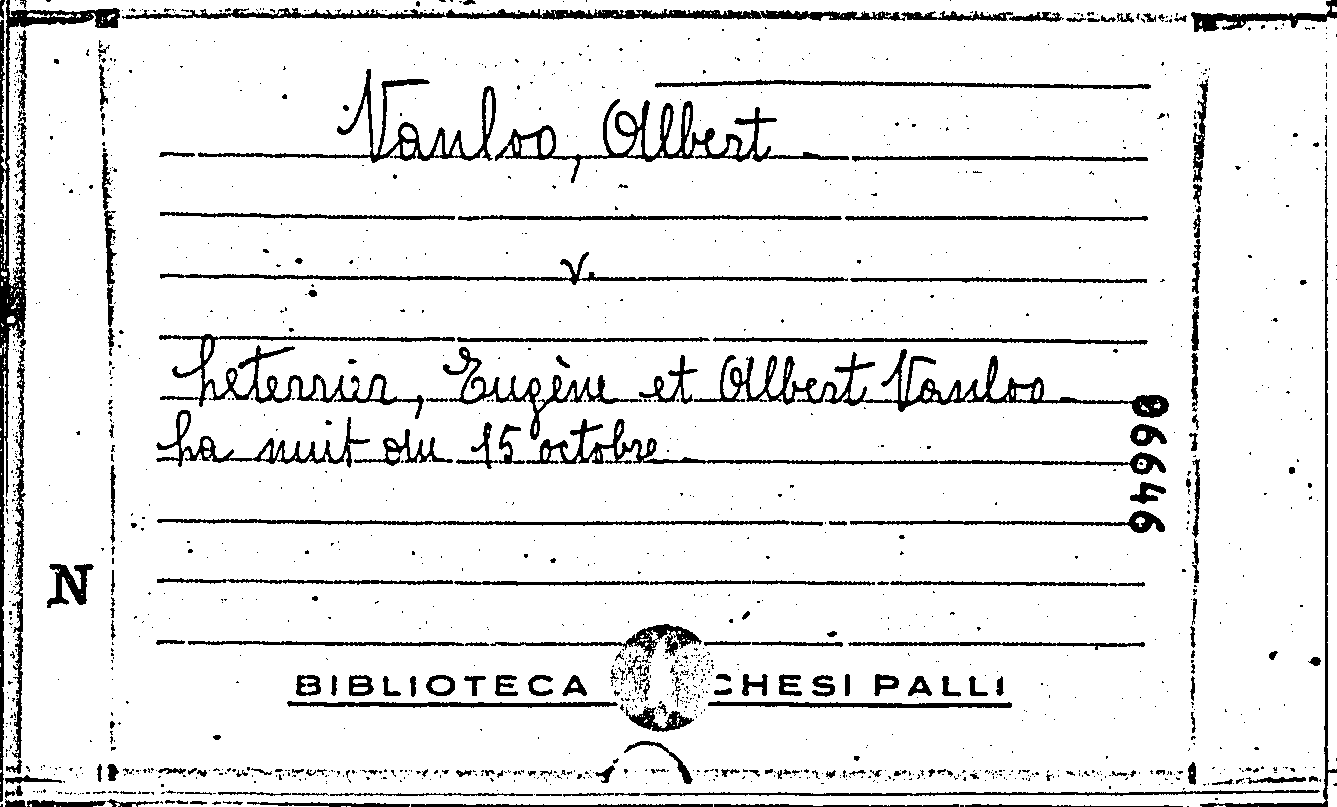 Vanloo, Albert
v.
Leterrier, Eugène et Albert Vanloo
La nuit du 15 octobre
06646
N
BIBLIOTECA CHESI PALLI